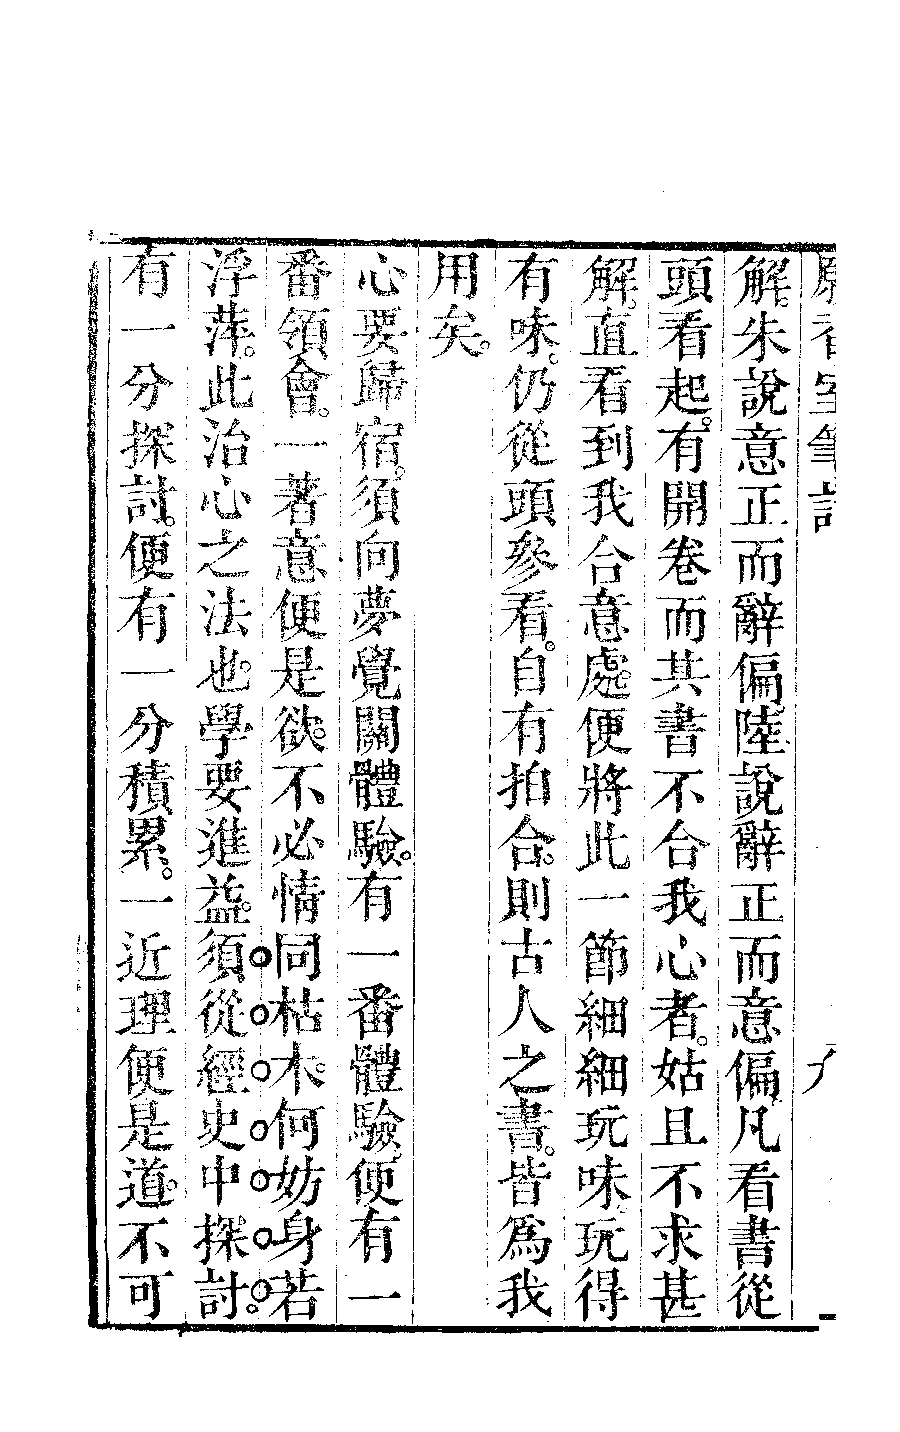 解。朱說意正而辭偏。陸說辭正而意偏。凡看書從
頭看起。有開卷而其書不合我心者。姑且不求甚
解。直看到我合意處。便將此一節細細玩味。玩得
有味。仍從頭參看。自有拍合。則古人之書。皆爲我
用矣。
心要歸宿。須向夢覺關體驗。有一番體驗。便有一
番領會。一著意便是欲。不必情同枯木。何妨身若
浮萍。此治心之法也。學要進益。須從經史中探討。
有一分探討。便有一分積累。一近理便是道。不可